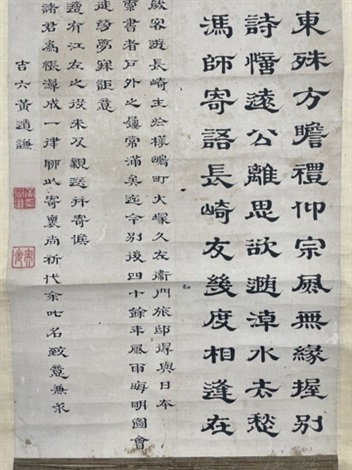 東殊方瞻禮仰宗風無緣握別
詩慳遠公離思欲遡漳水太愁
馮師寄語長崎友幾度相逢在
客遊長崎主於樣嶋町大塚久左衞門旅邸得與日本
索書者戶外之屨常滿矣迄今別後四十餘年風雨晦明圖會
徒勞夢寐詎意
適有江左之役未及親送并寄候
諸君為悵漫成一律聊以寄衷尚祈代余叱名致意兼求
古六黃道謙